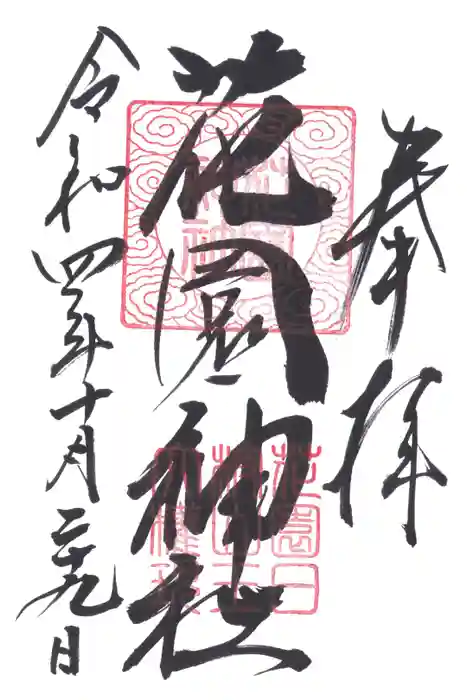 奉拝
花園神社
令和四年十月二十九日